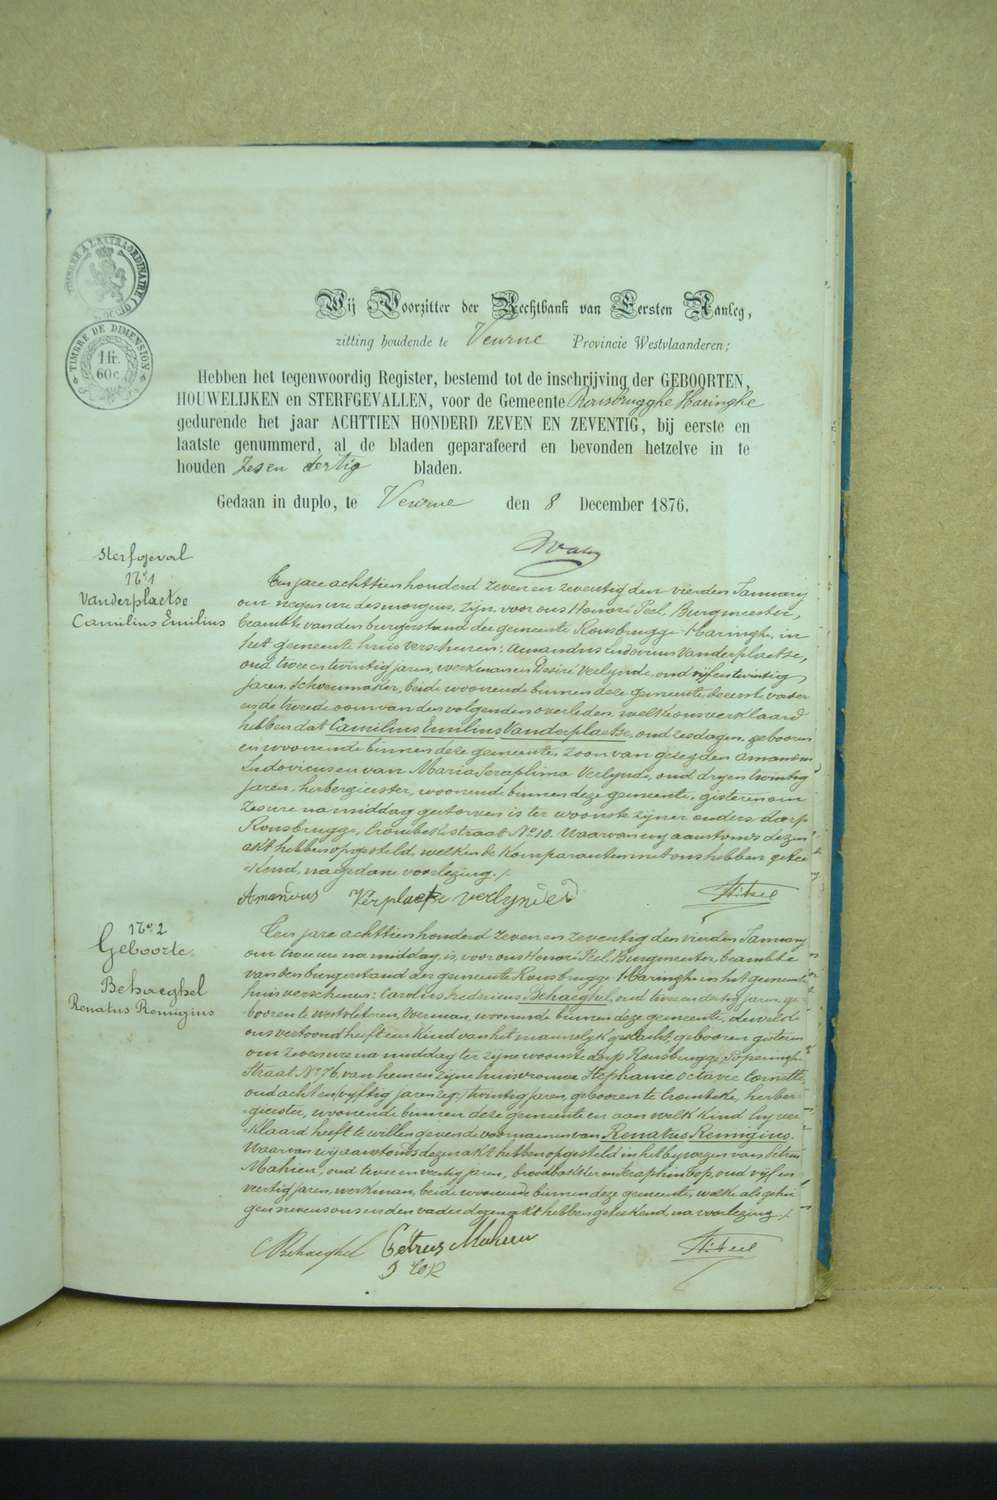 TIMBRE A L'EXTRAORDINAIRE
TIMBRE DE DIMENSION
1 fr.
60 c.
Wij Voorzitter der Rechtbank van Eersten Aanleg,
zitting houdende te Veurne Provincie Westvlaanderen;
Hebben het tegenwoordig Register, bestemd tot de inschrijving der GEBOORTEN,
HOUWELIJKEN en STERFGEVALLEN, voor de Gemeente Rousbrugghe Haringhe
gedurende het jaar ACHTTIEN HONDERD ZEVEN EN ZEVENTIG, bij eerste en
laatste genummerd, al de bladen geparafeerd en bevonden hetzelve in te
houden zes en dertig bladen.
Gedaan in duplo, te Veurne den 8 December 1876.
Sterfgeval
No. 1
Vanderplaetse
Camilius Emilius
Ten jare achttien honderd zeven en zeventig den vierden January
om negen ure des morgens, zijn voor ons Honoré Peel, Burgmeester,
beambte van den burgerstand der gemeente Rousbrugge-Haringhe, in
het gemeentehuis verschenen: Amandus Ludovicus Vanderplaetse,
oud twee en twintig jaren, werkman en Desiré Verlynde, oud vijf en twintig
jaren, schoenmaker, beide woonende binnen deze gemeente, de eerste vader
en de tweede oom van den volgenden overleden, welke ons verklaard
hebben dat Camilius Emilius Vanderplaetse, oud zes dagen, geboren
en woonende binnen deze gemeente, zoon van gezegden Amandus
Ludovicus en van Maria Seraphina Verlynde, oud dry en twintig
jaren, herbergierster, woonende binnen deze gemeente, gisteren om
zes ure na middag gestorven is ter woonste zijner ouders dorp
Rousbrugge, Crombekstraat No. 10. Waarvan wy aanstonds dezen
akt hebben opgesteld, welken de komparanten met ons hebben getee-
kend, na gedane voorlezing./.
Amandus Verplaetse verlynde D
H. Peel
No. 2
Geboorte.
Behaeghel
Renatus Remigius
Ten jare achttien honderd zeven en zeventig den vierden January
om twee ure na middag, is voor ons Honoré Peel, Burgmeester, beambte
van den burgerstand der gemeente Rousbrugge-Haringhe in het gemeente
huis verschenen: Carolus Fredericus Behaeghel, oud twee en dertig jaren, ge-
boren te Westvleteren, voerman, woonende binnen deze gemeente, dewelke
ons vertoond heeft een kind van het mannelyk geslacht, geboren gisteren
om zeven ure na middag ter zyne woonste dorp Rousbrugge, Poperinghe
Straat No. 76, van hem en zijne huisvrouw Stephanie Octavie Cornette,
oud acht en twintig jaren, geboren te Crombeke, herber-
gierster, woonende binnen deze gemeente en aan welk kind hy ver-
klaard heeft te willen geven de voornamen van Renatus Remigius.
Waarvan wy aanstonds dezen akt hebben opgesteld in het bywezen van Petrus
Mahieu, oud twee en veertig jaren, broodbakker en Seraphin Top, oud vijf en
veertig jaren, werkman, beide woonende binnen deze gemeente, welke als getui-
gen nevens ons en den vader dezen akt hebben geteekend, na voorlezing./.
C Behaeghel Petrus Mahieu
H. Peel
S top